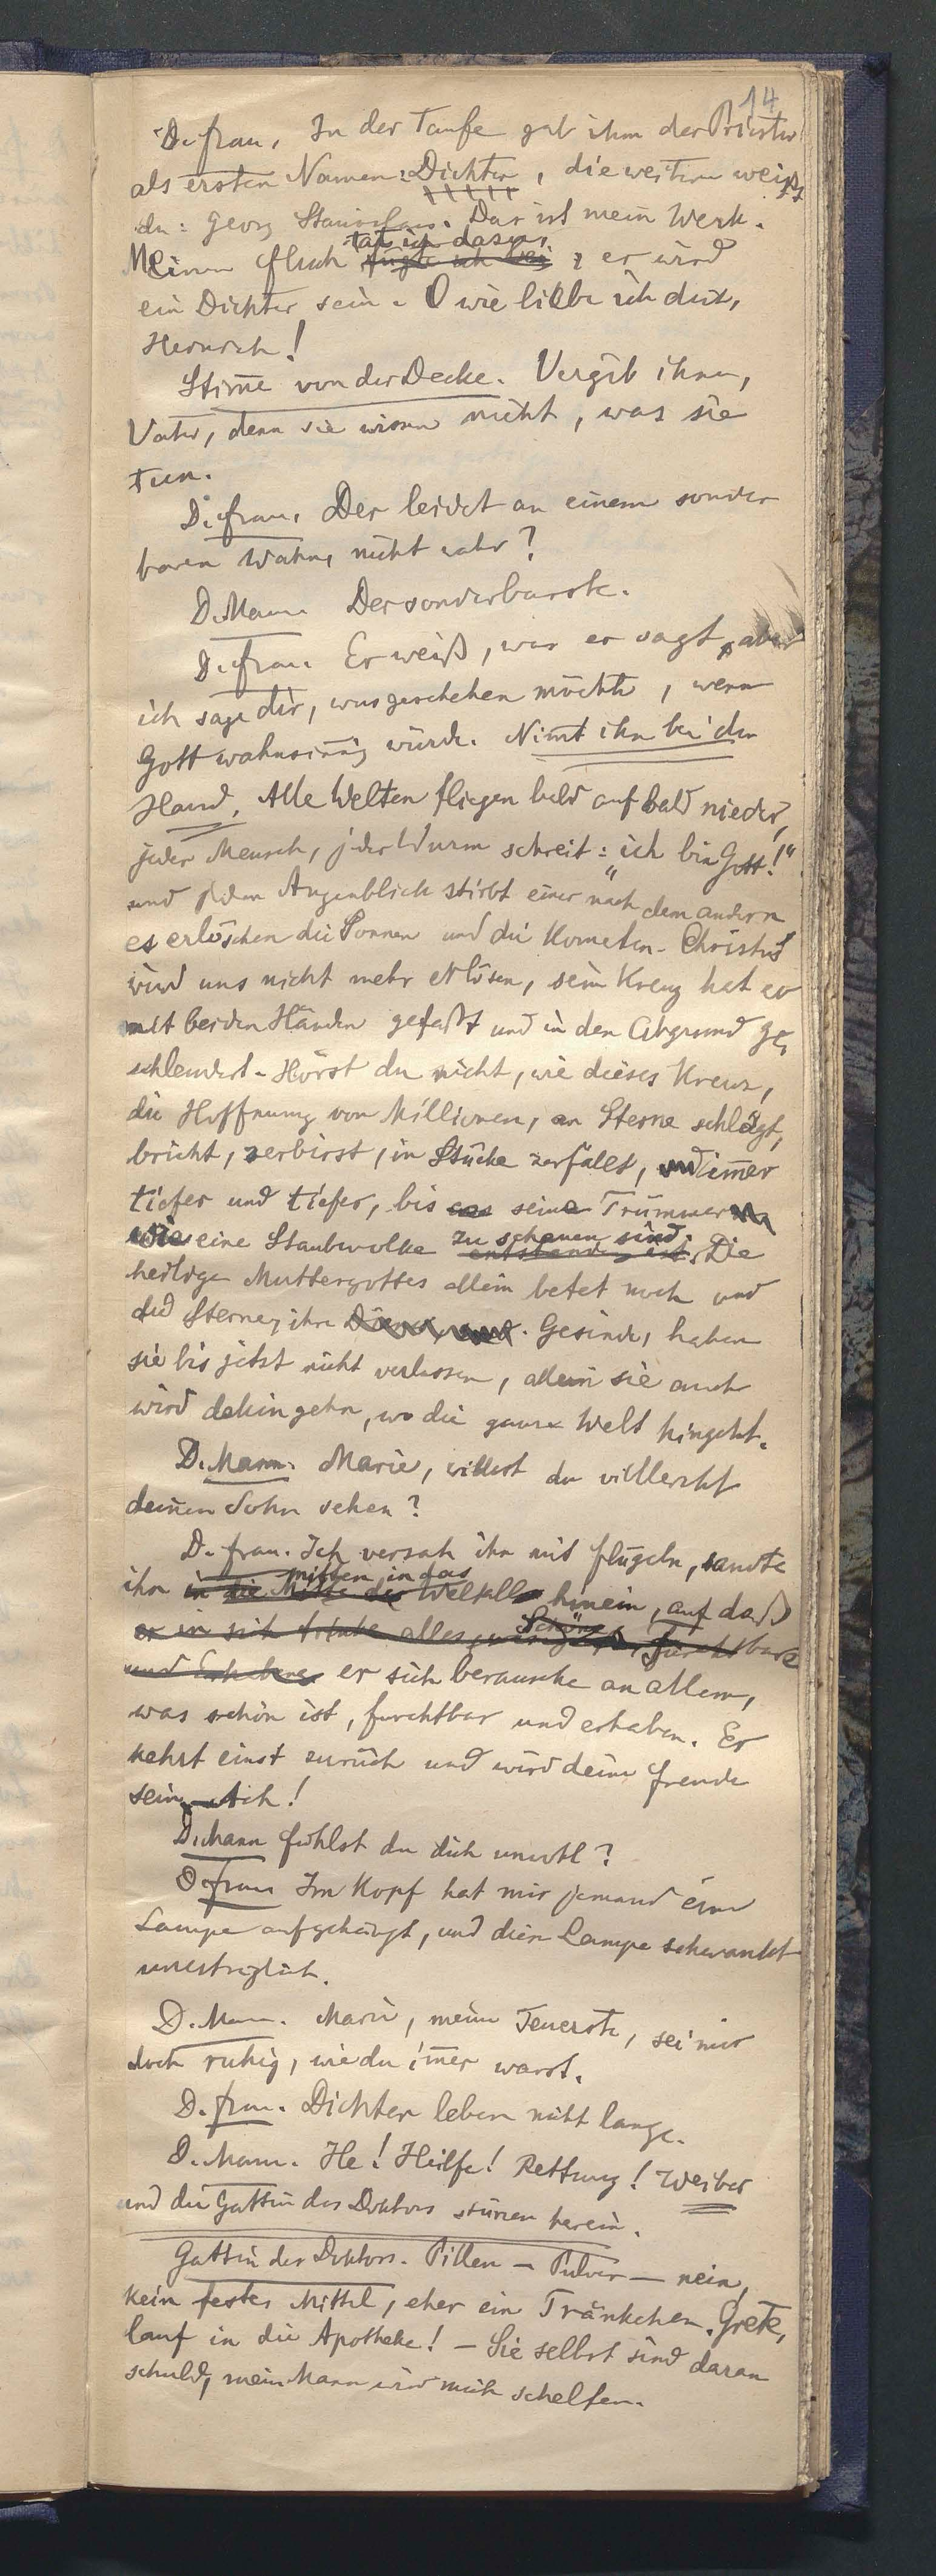 14
D. Frau. In der Taufe gab ihm der Priester
als ersten Namen: Dichter, die weitern weißt
du: Georg Stanislaus. Das ist mein Werk.
tat ich dazu,
Meinen Fluch fügte ich bei ; er wird
ein Dichter sein. O wie liebe ich dich,
Heinrich!
Stim̅e von der Decke. Vergib ihnen,
Vater, denn sie wissen nicht, was sie
tun.
D. Frau. Der leidet an einem sonder
baren Wahn, nicht wahr?
D. Mann Der sonderbarste.
D. Frau Er weiß, was er sagt, aber
ich sage dir, was geschehen möchte, wenn
Gott wahnsinnig würde. Nim̅t ihn bei der
Hand. Alle Welten fliegen bald auf bald nieder,
jeder Mensch, jeder Wurm schreit: „ich bin Gott!“
und jeden Augenblick stirbt einer nach dem andern
es erlöschen die Sonnen und die Kometen. Christus
wird uns nicht mehr erlösen, sein Kreuz hat er
mit beiden Händen gefaßt und in den Abgrund ge,
schleudert. Hörst du nicht, wie dieses Kreuz,
die Hoffnung von Millionen, an Sterne schlägt,
bricht, zerbirst, in Stücke zerfällt, und im̅er
tiefer und tiefer, bis aus seine Trümmern
wie eine Staubwolke zu schauen sind.
entstanden ist. Die
heilige Muttergottes allein betet noch und
die Sterne, ihre Gesinde, haben
sie bis jetzt nicht verlassen, allein sie auch
wird dahin gehn, wo die ganze Welt hingeht.
D. Mann. Marie, willst du vielleicht
deinen Sohn sehen?
D. Frau. Ich versah ihn mit Flügeln, sandte
mitten in das
ihn in die Mitte des Weltalls hinein, auf daß
Schöne
er in sich trinke alles, was furchtbare
und Erhabene er sich berausche an allem,
was schön ist, furchtbar und erhaben. Er
kehrt einst zurück und wird deine Freude
sein – Ach!
D. Mann Fühlst du dich unwohl?
D Frau Im Kopf hat mir jemand eine
Lampe aufgehängt, und diese Lampe schwankt
unerträglich.
D. Mann. Marie, meine Teuerste, sei mir
doch ruhig, wie du im̅er warst.
D. Frau. Dichter leben nicht lange.
D. Mann. He! Heilfe! Rettung! Weiber
und die Gattin des Doktors stürzen herein.
Gattin des Doktors. Pillen – Pulver – nein,
kein festes Mittel, eher ein Tränkchen. Grete,
lauf in die Apotheke! – Sie selbst sind daran
schuld, mein Mann wird mich schelten.